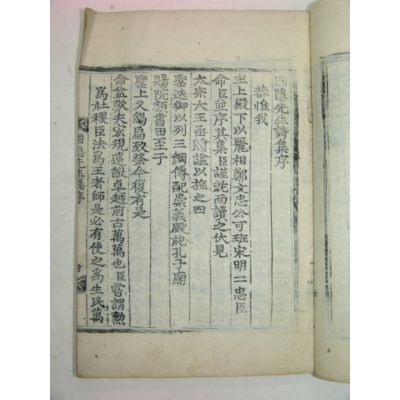 圃隱先生詩集序
恭惟我
主上殿下以麗相鄭文忠公可班宋明二忠臣
命臣並序其集臣謹沐而讀之伏見
太宗大王亟贈諡以旌之
聖迭御以列三綱傳配崇義殿祀孔子廟
賜院額書田至于
聖上又錫扁致祭今復有是
命益歎夫宏規遠猷卓越前古萬萬也臣嘗謂勳
爲社稷臣法爲王者師是必有使之爲生民萬
圃隱先生集序